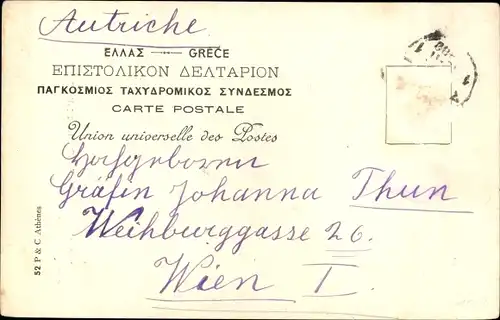 Autriche
ΕΛΛΑΣ — GRÈCE
ΕΠΙΣΤΟΛΙΚΟΝ ΔΕΛΤΑΡΙΟΝ
ΠΑΓΚΟΣΜΙΟΣ ΤΑΧΥΔΡΟΜΙΚΟΣ ΣΥΝΔΕΣΜΟΣ
CARTE POSTALE
Union universelle des Postes
Hochgeboren
Gräfin Johanna Thun
Weihburggasse 26.
Wien I
52 P & C Athènes